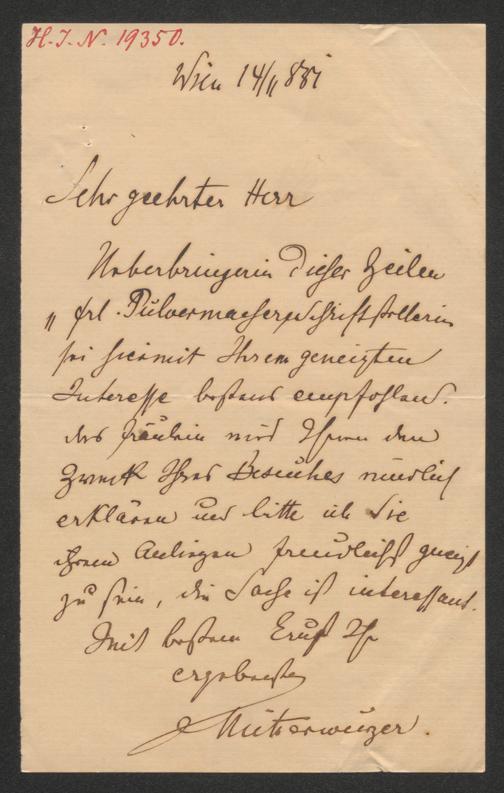 H. I. N. 19350.
Wien 14/11 881
Sehr geehrter Herr
Ueberbringerin dieser Zeilen
„ Frl. Pulvermacher, Schriftstellerin
sei hiermit Ihrem geneigten
Interesse bestens empfohlen.
das Fräulein wird Ihnen den
Zweck Ihres Besuches mündlich
erklären und bitte ich Sie
ihrem Anliegen freundlichst geneigt
zu sein, die Sache ist interessant.
Mit bestem Gruß Ihr
ergebenster
Mitterwurzer.